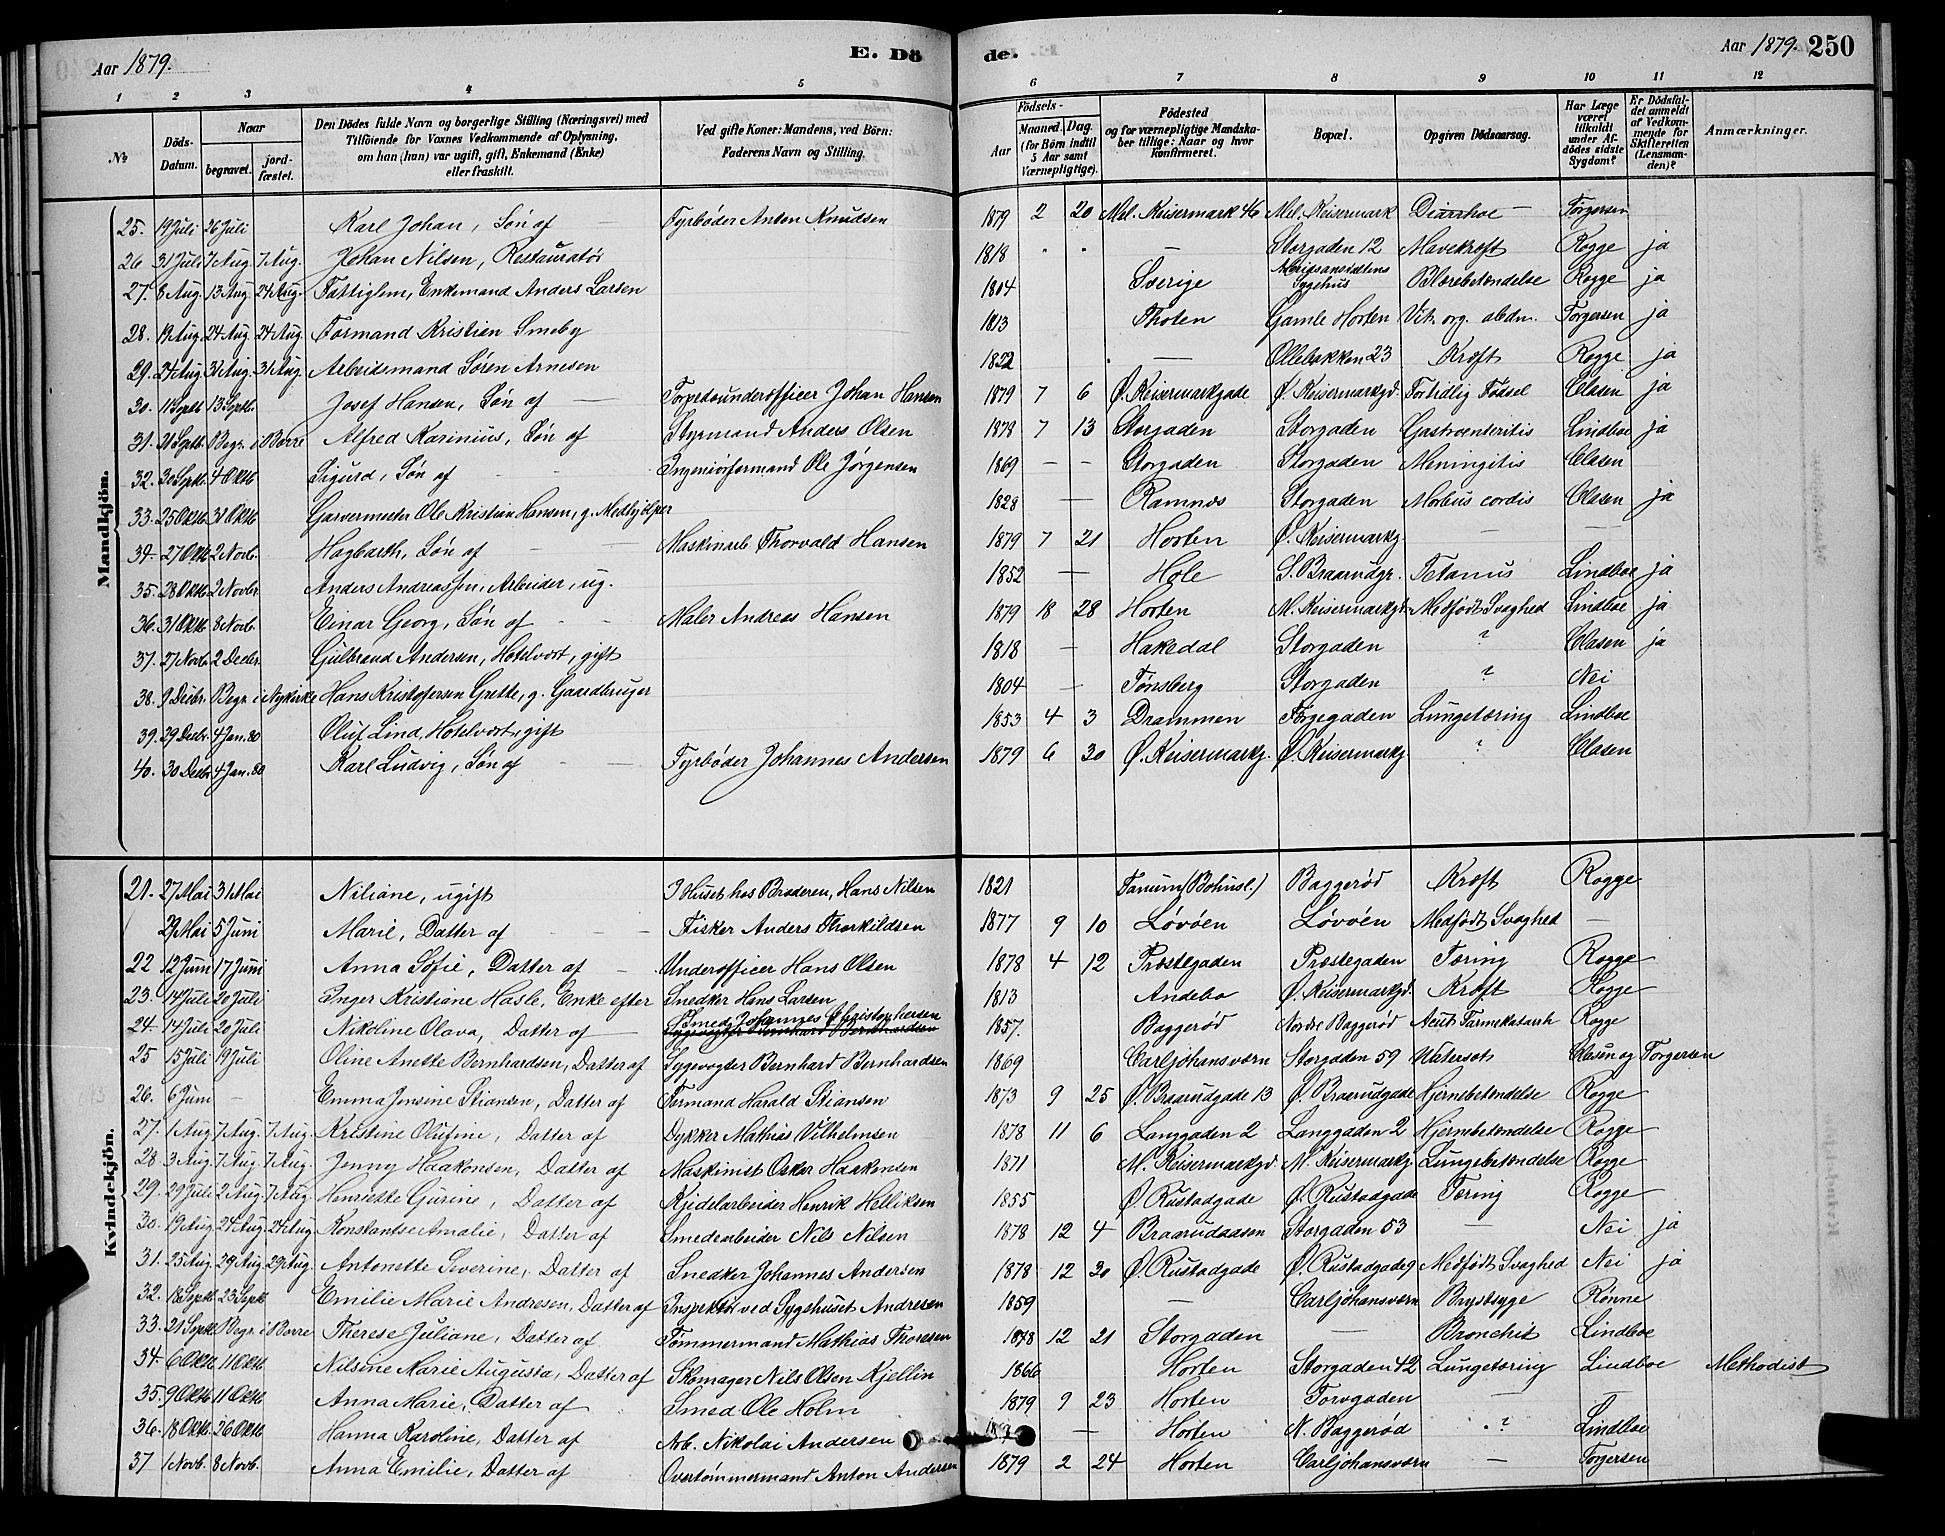 Aar 1879. E. Dö de. Aar 1879. 250
1 2 3 4 5 6 7 8 9 10 11 12
№ Döds-Datum. Naar begravet. jordfæstet. Den Dödes fulde Navn og borgerlige Stilling (Næringsvei) med Tilföiende for Voxnes Vedkommende af Oplysning, om han (hun) var ugift, gift, Enkemand (Enke) eller fraskilt. Ved gifte Koner: Mandens, ved Börn: Faderens Navn og Stilling. Födsels- Aar Maaned. Dag. (for Börn indtil 5 Aar samt Værnepligtige). Födested og for værnepligtige Mandskaber tillige: Naar og hvor konfirmeret. Bopæl. Opgiven Dödsaarsag. Har Læge været tilkaldt under Afdödes sidste Sygdom? Er Dödsfaldet anmeldt af Vedkommende for Skifteretten (Lensmanden)? Anmærkninger.
Mandkjön.
25. 19 Juli 26 Juli Karl Johan, Søn af — Fyrbøder Anton Knudsen 1879 2 20 Mel. Keisermark 46 Mel. Keisermark Diarrhoe — Torgersen
26 31 Juli 7 Aug. 7 Aug. Johan Nilsen, Restauratør 1818 " " — Storgaden 12 Mavekræft Rogge ja
27. 8 Aug. 13 Aug. 24 Aug. Fattiglem, Enkemand Anders Larsen 1804 Sverige Sygehus Blærebetændelse Rogge ja
28. 19 Aug. 24 Aug. 24 Aug. Formand Kristian Smeby 1813 Thoten Gamle Horten Vit. org. abdn. Torgersen ja
29. 24 Aug. 31 Aug. 31 Aug. Arbeidsmand Søren Arnesen 1822 — Ollebakken 23 Kræft Rogge ja
30. 11 Septb. 13 Septb. Josef Hansen, Søn af — Torpedounderofficer Johan Hansen 1879 7 6 Ø. Keisermarkgade Ø. Keisermarkgd. Fortidlig Fødsel Clasen ja
31. 21 Septb. Begr. i Borre Alfred Karinius, Søn af Styrmand Anders Olsen 1878 7 13 Storgaden Storgaden Gastroenteritis Lindboe ja
32. 30 Septb. 4 Oktb Sigurd, Søn af — — Ingeniørformand Ole Jørgensen 1869 — — Storgaden Storgaden Meningitis Clasen
33. 25 Oktb 31 Oktb Garvermester Ole Kristian Hansen, g. Medhjælper 1828 — Ramnæs Storgaden Morbus cordis Clasen ja
34. 27 Oktb 2 Novb. Hagbarth, Søn af — — Maskinarb Thorvald Hansen 1879 7 21 Horten Ø. Keisermarkg — —
35. 28 Oktb 2 Novbr Anders Andreassen, Arbeider, ug. 1852 — Hole S. Braarudgr. Tetanus Lindboe ja
36. 31 Oktb 8 Novb. Einar Georg, Søn af — — Maler Andreas Hansen 1879 18 28 Horten M. Keisermarkgd. Medfødt Svaghed Lindboe ja
37. 27 Novb. 2 Decbr. Gulbrand Andersen, Hotelvært, gift 1818 — Hakedal Storgaden ? Clasen ja
38. 9 Decbr. Begr. i Nykirke Hans Kristofersen Grette, g. Gaardbruger 1804 — Tønsberg Storgaden ? Nei
39. 29 Decbr. 4 Jan. 80 Oluf Lind, Hotelvært, gift 1853 4 3 Drammen Torvegaden Lungetæring Lindboe
40. 30 Decbr 4 Jan. 80 Karl Ludvig, Søn af — — Fyrbøder Johannes Andersen 1879 6 30 Ø. Keisermarkg. Ø. Keisermarkg ? Clasen
Kvindekjön.
21. 27 Mai 31 Mai Niliane, ugift I Huset hos Broderen, Hans Nilsen 1821 Tanum (Bohusl.) Baggerød Kræft Rogge
29 Mai 5 Juni Marie, Datter af — — Fisker Anders Thorkildsen 1877 9 10 Løvøen Løvøen Medfødt Svaghed —
22 12 Juni 17 Juni Anna Sofie, Datter af — Underofficer Hans Olsen 1878 4 12 Præstegaden Præstegaden Tæring Rogge
23. 14 Juli 20 Juli Inger Kristiane Hasle, Enke efter Snedker Hans Larsen 1813 Andebo Ø. Keisermarkgd. Kræft Rogge
24. 14 Juli 20 Juli Nikoline Olava, Datter af — Smed Johannes Christophersen Sygevogter Bernhard Bernhardsen 1857. Baggerød Nordre Baggerød Acut Tarmekatarrh Rogge
25 15 Juli 19 Juli Oline Anette Bernhardsen, Datter af Sygevogter Bernhard Bernhardsen 1869 Carljohansværn Storgaden 59 Vatersot Clasen og Torgersen
26. 6 Juni — Emma Jensine Stiansen, Datter af Formand Harald Stiansen 1873 9 25 Ø. Braarudgade 13 Ø. Braarudgade Hjernebetændelse Rogge
27. 1 Aug 7 Aug. 7 Aug. Kristine Olufine, Datter af Dykker Mathias Vilhelmsen 1878 11 6 Langgaden 2 Langgaden 2 Hjernebetændelse Rogge
28 3 Aug. 7 Aug. 7 Aug. Jenny Haakonsen, Datter af Maskinist Oskar Haakonsen 1871 M. Keisermarkgd. M. Keisermarkg. Lungebetændelse Rogge
29. 29 Juli 2 Aug. 7 Aug. Henriette Gurine, Datter af Kjedelarbeider Henrik Helliksen 1855 Ø. Rustadgade Ø. Rustadgade Tæring Rogge
30. 19 Aug. 24 Aug. 24 Aug. Konstantse Amalie, Datter af Smedarbeider Nils Nilsen 1878 12 4 Braarudaasen Storgaden 53 — Nei ja
31. 25 Aug. 29 Aug. 29 Aug. Antonette Severine, Datter af Snedker Johannes Andersen 1878 12 30 Ø. Rustadgade Ø. Rustadgade 9 Medfødt Svaghed Nei ja
32. 18 Septb. 23 Septb Emilie Marie Andresen, Datter af Inspektør ved Sygehuset Andresen 1859 — Carljohansværn Brystsyge Rønne
33. 21 Septb. Begr. i Borre Therese Juliane, Datter af Tømmermand Mathias Thoresen 1878 12 21 Storgaden — Bronchit Lindboe
34. 6 Oktb. 11 Oktb Nilsine Marie Augusta, Datter af Skomager Nils Olsen Kjellin 1866 Horten Storgaden 42 Lungetæring Lindboe Methodist
35. 9 Oktb 11 Oktb Anna Marie, Datter af Smed Ole Holm 1879 9 23 Horten Torvgaden — —
36. 18 Oktb. 26 Oktb. Hanna Karoline, Datter af Arb. Nikolai Andersen — Horten N. Baggerød ? Lindboe
37 1 Novb. 8 Novb. Anna Emilie, Datter af Overtømmermand Anton Andersen 1879 2 24 Horten Carljohansværn — Torgersen